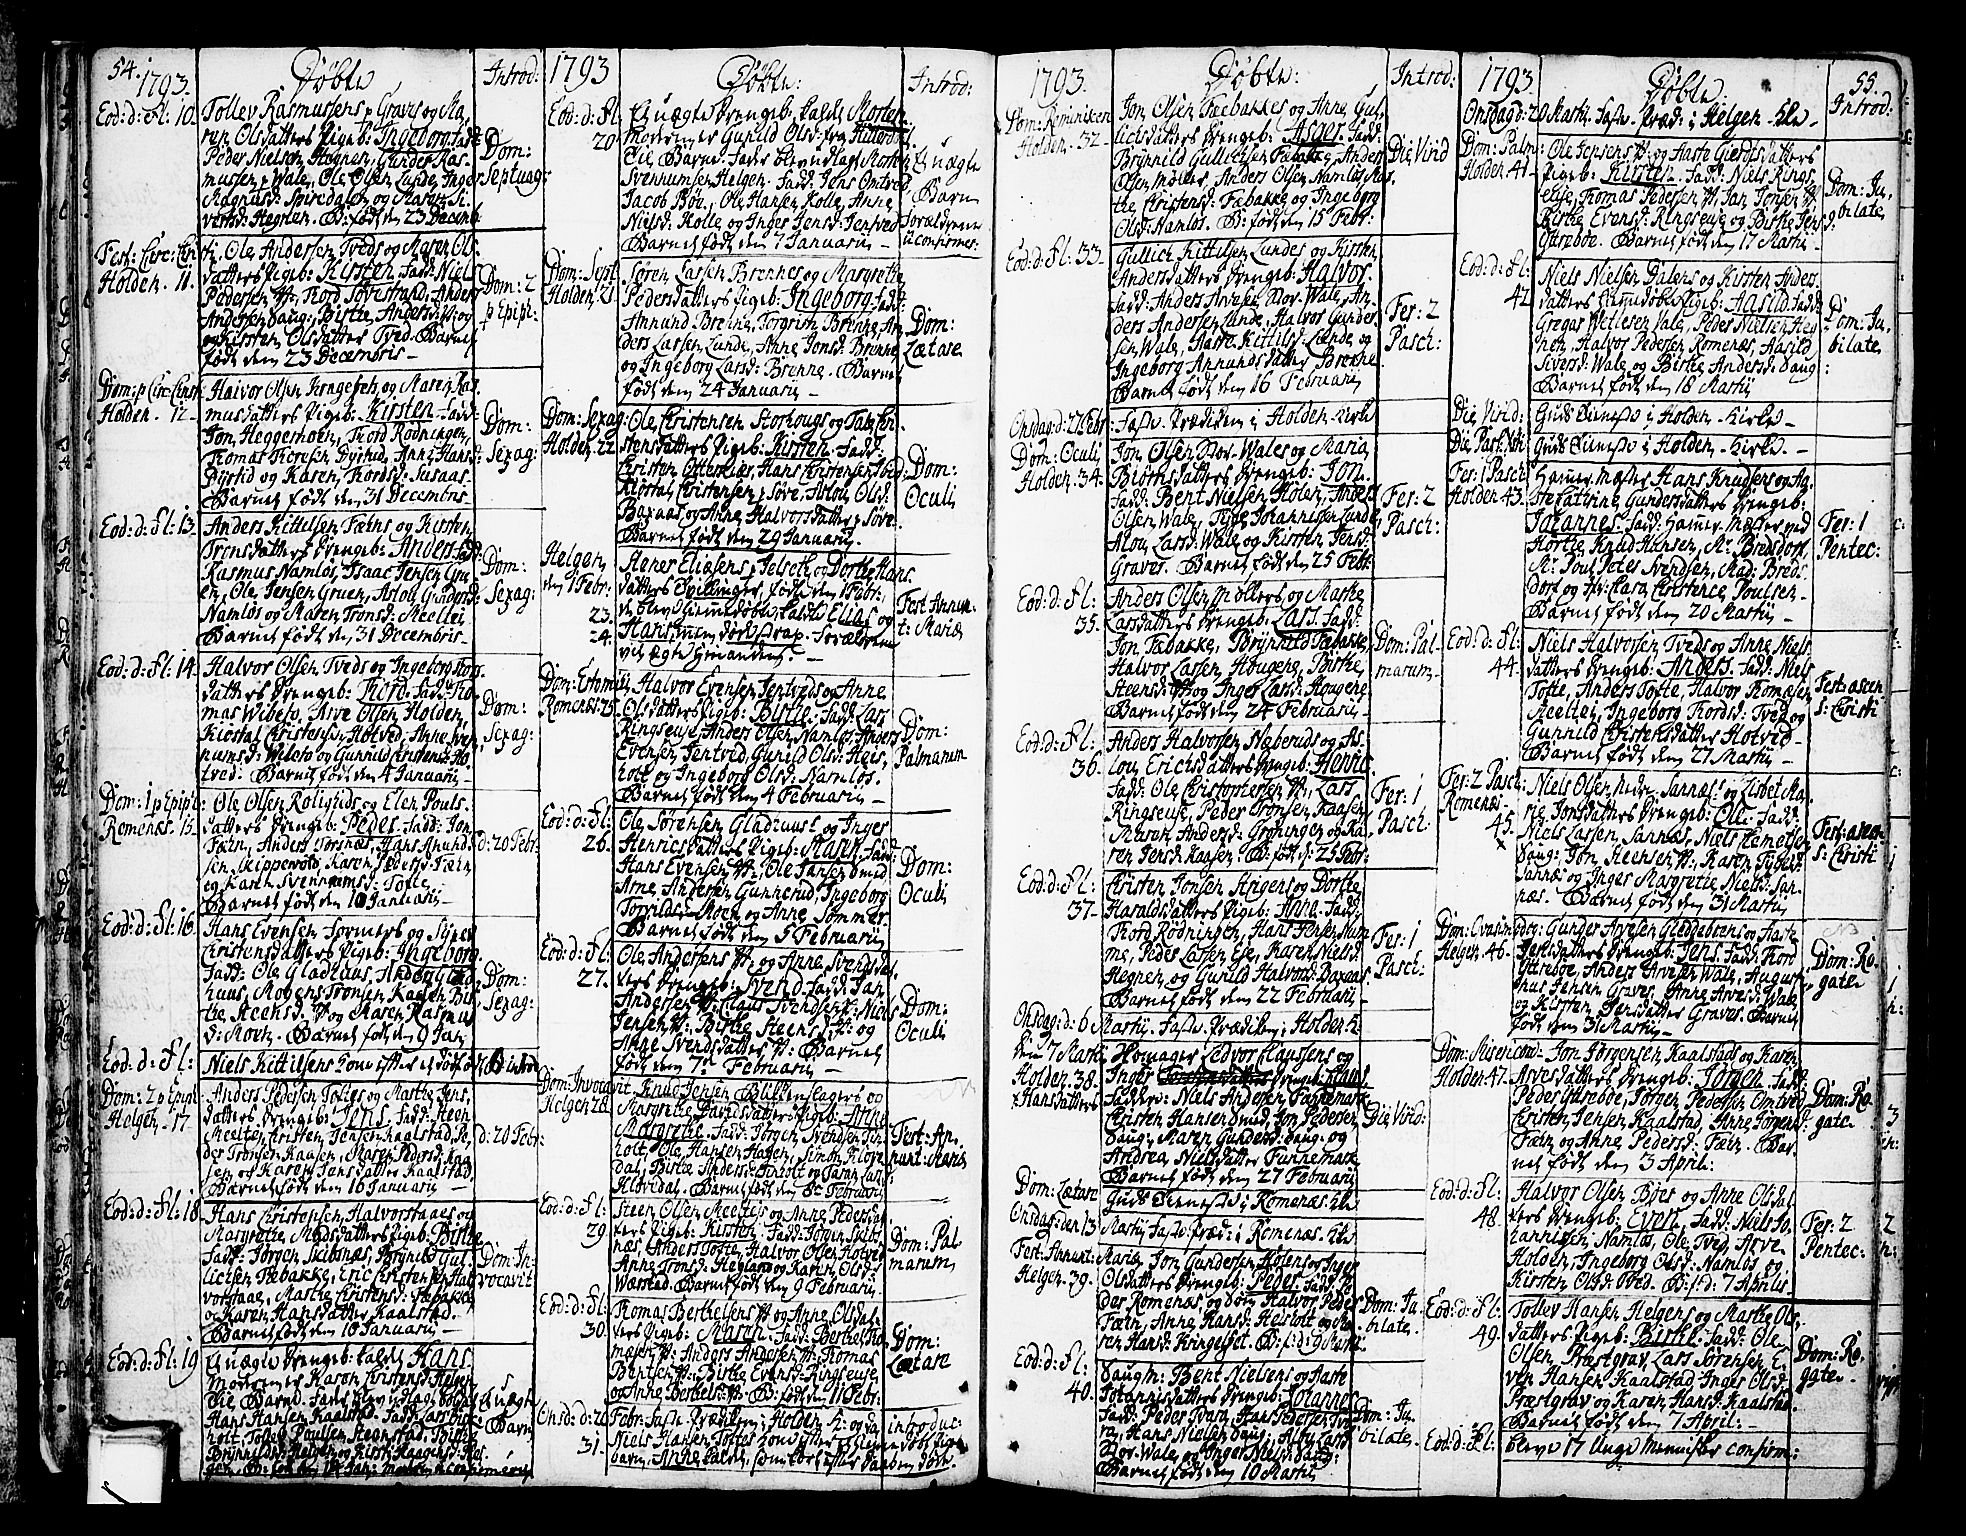 54.
1793.
Døbte
Introd:
Eod: d: Fl: 10.
Tollev Rasmussens p Grave og Ma-
ren Olsdatters Pigeb: Ingeborg Fadd:
Peder Nielsen Hegnen, Gunder Ras-
mussen p Wale, Ole Olsen Lunde, Inger
Magnusd: Spiredalen og Maren Si-
versd: Hegnen. B: født den 23 Decemb.
Dom:
Septuag:
Fest: Circ: Chri-
Holden. 11.
sti, Ole Andersen Tveds og Maren Ols-
datters Pigeb: Kirsten. Fadd: Niels
Pedersen Tord Tovestrand, Anders
Andersen Daug, Birthe Andersd:
og Kirsten Olsdatter Tved. Barnet
født den 23 Decembris.
Dom: 2
p Epiph:
Dom: p Circ: Christ:
Holden. 12.
Halvor Olsen og Maren Ras-
musdatters Pigeb: Kirsten. Fadd:
Jon Heggerhoen, Thord Rødningen,
Thomas Dyrhid, Anne Hans
Dyrhid og Karen Thordsd: Susaas.
Barnet født den 31 Decembris.
Dom:
Sexag:
Eod: d: Fl: 13.
Anders Kittilsen Fæhns og Kirsten
Tronsdatters Drengeb: Anders Fadd:
Rasmus Namløs, Isaac Jensen Gru-
en, Ole Jensen Gruen, Aslou Gundersd:
Namløs og Maren Tronsd: Meeltei
Barnet født den 31 Decembris.
Dom:
Sexag:
Eod: d: Fl: 14.
Halvor Olsen Tveds og Ingeborg Thors-
datters Drengeb: Thord. Fadd: Tho-
mas Wibeto, Arve Olsen Holden,
Kiøstol Christensen Hotved, Anne Sven-
nomsd: Wibeto og Gunnild Christensd: Ho-
tved. Barnet født den 4 Januarii
Dom:
Sexag:
Dom: 1 p Epiph:
Romenæs. 15.
Ole Olsen Rolighds og Elen Pouls-
datters Drengeb: Peder. Fadd: Jon
Fæhn, Anders Torsnæs, Hans Amund-
sen Skippervold, Karen Pedersd: Fæhn
og Karen Svennomsd: Tofte.
Barnet født den 10 Januarii
d: 20 Febr:
Eod: d: Fl: 16.
Hans Evensen Formers og Sizel
Christensdatters Pigeb: Ingeborg.
Fadd: Ole Gladhuus, Anders Glad-
huus, Mogens Tronsen Kaasen, Bir-
the Steensd: og Karen Rasmus-
d: Moen. Barnet født den 9 Jan
Dom:
Sexag:
Eod: d: Fl:
Niels Kittilsens Kone efter et dødfød B introd
Dom: 2 p Epiph
Helgen. 17.
Anders Pedersen Toftes og Marthe Jens-
datters Drengeb: Jens. Fadd: Steen
Meeltei, Christen Jensen Kaalstad, Pe-
der Tronsen Kaasen, Maren Pedersd: Kaa-
sen og Karen Jensdatter Kaalstad.
Barnet født den 16 Januarii
d: 20 Febr:
Eod: d: Fl: 18.
Hans Christensen Halvorstaaes og
Margrethe Madsdatters Pigeb: Birthe
Fadd: Jørgen Skibsnæs, Brynild Gul-
lichsen Fæbakke, Eric Christensen Hal-
vorstaae, Marthe Christensd: Fæbakke
og Karen Hansdatter Kaalstad.
Barnet født den 10 Januarii
Dom: In-
vocavit
Eod: d: Fl: 19
Et uægte Drengeb: kaldt Hans
Moderen er Karen Christensd: Helgen
Eie Barnets Fader blev udlagt
Hans Hansen Kaalstad. Fadd: Lars
holt, Tollev Poulsen Steenstad, Birthe
Brynnildsd: Helgen og Kirst: Haagensd:
Et uægte
Barn
1793
Døbte:
Introd:
Eod: d: Fl:
20.
Et uægte Drengeb: kaldt Morten.
Moderen er Gunild Olsd: fra
Eie Barnets Fader blev udlagt Morten
Svennumsen Helgen. Fadd: Jens Omtved
Jacob Bøe, Ole Hansen Kolle, Anne
Nielsd: Kolle og Inger Jensd: Jensved
Barnet født den 7 Januarii
Et uægte
Barn
Forældrene
u confirmer:
Dom: Sept
Holden. 21.
Søren Larsen Brennes og Margrethe
Pedersdatters Pigeb: Ingeborg. Fadd:
Annund Brenne, Torgrim Brenne, An-
ders Larsen Lunde, Anne Jonsd: Brenne
og Ingeborg Larsd: Brenne. Barnet
født den 24 Januarii
Dom:
Lætare
Dom: Sexag
Holden. 22.
Ole Christensen Storhougs og Chri-
stensdatters Pigeb: Kirsten. Fadd:
Christen Otterkiær, Hans Christensen
Kiøstol Christensen p Søve, Aslou Olsd:
Baxaas og Anne Halvorsdatter p Søve.
Barnet født den 29 Januarii.
Dom:
Oculi
Helgen
den 1 Febr:
23.
24.
Hones Eliæsens p Jelseth og Dorthe Hans-
datters Tvillinger, fødte den 1 Febr:
de bleve hiemedøbte kaldte Elias og
Hans, men døde strax. Forældrene
vel ægte hinanden.
Fest Annun-
t: Mariæ
Dom: Estomihi
Romenæs. 25
Halvor Evensen Jentveds og Anne
Olsdatters Pigeb: Birthe. Fadd: Lars
Ringseuse, Anders Olsen Namløs, Anders
Evensen Jentved, Gunild Olsd: Heis-
holt og Ingeborg Olsd: Namløs.
Barnet født den 4 Februarii
Dom:
Palmarum
Eod: d: Fl:
26.
Ole Sørensen Gladhuus og Inger
Henricsdatters Pigeb: Maren. Fadd:
Hans Evensen Ole Jansen Smed
Arne Andersen Gunnerud, Ingeborg
Torrildsd: Moen og Anne Sommer
Barnet født den 5 Februarii
Dom:
Oculi
Eod: d: Fl:
27.
Ole Andersens og Anne Svendsdat-
ters Drengeb: Svend. Fadd: Jan
Andersen Claus Svendsen Niels
Jensen Birthe Steensd: og
Anne Svendsdatter Barnet
født den 7de Februarii
Dom:
Oculi
Dom: Invocavit
Helgen 28
Knud Jensen Blikkenslagers og
Margrethe Davidsdatters Pigeb: Anne
Margrethe. Fadd: Jørgen Svendsen
holt, Ole Hansen Hagen, Simon Klove-
dal, Birthe Andersd: og Sarah Lars
Klovedal. Barnet født den 8de Februarii
Fest: An-
nunt: Mariæ
Eod: d: Fl:
29.
Steen Olsen Meelteis og Anne Pedersdat-
ters Pigeb: Kirsten. Fadd: Jørgen Skibs-
næs, Anders Tofte, Halvor Olsen Hotved
Anne Tronsd: Hegland og Karen Olsd:
Warstad. Barnet født den 9 Februarii.
Dom: Pal-
marum
Eod: d: Fl:
30.
Thomas Berthelsens og Anne Olsdat-
ters Pigeb: Maren. Fadd: Berthel Tho-
mæsen Anders Andersen Thomas
Bentsen Birthe Evensd: Ringseuse,
og Anne Berthelsd: B: født den 11 Febr:
Dom:
Lætare
Onsd: d: 20
31.
Febr: Faste Prædiken i Holden K: og
Niels Hansen Toftes Kone efter
barn, Anne kaldt, som døde efter daaben
introduc-
1793.
Døbte:
Introd:
Dom: Reminiscer
Holden. 32.
Jon Olsen Fæbakkes og Anne Gul-
lichsdatters Drengeb: Asger. Fadd:
Brynnild Gullichsen Fæbakke, Anders
Olsen Møller, Anders Olsen Namløs, Mar-
the Christensd: Fæbakke og Ingeborg
Olsd: Namløs. B: født den 15 Febr:
Die Virid
Eod: d: Fl: 33.
Gullich Kittilsen Lundes og Kirsten
Andersdatters Drengeb: Halvor.
Fadd: Anders Arvesen Nor-Wale, An-
ders Andersen Lunde, Halvor Gunder-
sen Wale, Aaste Kittilsd: Lunde og
Ingeborg Annundsdatter Brenne
Barnet født den 16 Februarii
Fer: 2
Pasch:
Onsdag: d: 27 Febr
Faste Prædiken i Holden Kirke
Dom: Oculi
Holden. 34.
Jon Olsen Nor-Wales og Maria
Biørnsdatters Drengeb: Jon.
Fadd: Bent Nielsen Holen, Anders
Olsen Wale, Tyge Johannissen Lunde,
Alou Larsd: Wale og Kirsten Jensd:
Graver. Barnet født den 25 Febr:
Fer: 2
Pasch:
Eod: d: Fl:
35.
Anders Olsen Møllers og Marthe
Larsdatters Drengeb: Lars. Fadd:
Jon Fæbakke, Brynnild Fæbakke,
Halvor Larsen Hougene, Birthe
Steensd: og Inger Larsd: Hougene
Barnet født den 24 Februarii
Dom: Pal-
marum
Eod: d: Fl:
36.
Anders Halvorsen Næseruds og As-
lou Erichsdatters Drengeb: Henric.
Fadd: Ole Christophersen Lars
Ringseuse, Peder Tronsen Kaasen,
Maren Andersd: Groningen og Ka-
ren Jensd: Kaasen. B: født d: 25 Febr:
Fer: 1
Pasch:
Eod: d: Fl:
37.
Christen Jonsen og Dorthe
Haraldsdatters Pigeb: Anne. Fadd:
Thord Rødningen, Hans Persen Mun-
me, Peder Larsen Eie, Karen Nielsd:
Hegnen og Gunild Halvorsd: Baxaas.
Barnet født den 22 Februarii
Fer: 1
Pasch:
Onsdag: d: 6 Martii. Faste Prædiken i Holden K:
Den 7 Martii
Holden. 38.
x Hansdatters
Homager Ledvor Claussens og
Inger Drengeb: Claus.
Faddere: Niels Andersen Funnemark
Christen Hansen Smed, Jon Pedersen
Daug, Maren Gundersd: Daug og
Andrea Nielsdatter Funnemark
Barnet født den 27 Februarii
Die Virid:
Dom: Lætare
Guds Tieneste i Romenæs. K:
Onsdag: den 13 Martii Faste Præd: i Romenæs. K:
Fest: Annunt: Mariæ
Helgen. 39.
Jon Gundersen Holens og Inger
Olsdatters Drengeb: Peder. Fadd: Pe-
der Romenæs, og dom Halvor Peder
Fæhn, Anne Hansd: Heisholt og Ma-
ren Hansd: Kringelhot. B: f: d: 9 Martii
Dom: Ju-
bilate.
Eod: d: Fl:
40.
Daugh: Bent Nielsens og Inger
Johannisdatters Drengeb: Johannes
Fadd: Peder Tvara, Hans Pedersen Tva-
ra, Hans Nielsen Daug, Alou Larsd:
Nor-Wale og Inger Nielsd: Daug:
Barnet født den 10 Martii
Dom: Ju-
bilate.
1793.
Døbte:
55.
Introd:
Onsdag d: 20 Martii. Faste Præd: i Helgen K:
Dom: Palm
Holden 41.
Ole Jensens og Aaste Giertsdatters
Pigeb: Kirsten. Fadd: Niels Rings-
euse, Thomas Pedersen Jan Jonsen
Birthe Evensd: Ringseuse og Birthe Jens
d: Ytterbøe. Barnet født den 17 Martii
Dom: Ju-
bilate,
Eod: d: Fl:
42.
Niels Nielsen Dalens og Kirsten Anders-
datters hiemdøbte Pigeb: Aasild. Fadd:
Gregar Wetlesen Vale, Peder Nielsen Heg-
nen, Halvor Pedersen Romenæs, Aasild
Siversd: Wale og Birthe Andersd: Daug
Barnet født den 18 Martii
Dom: Ju-
bilate,
Die Virid:
Guds Tieneste i Holden Kirke
Die Parasceve
Guds Tieneste i Holden Kirke.
Fer: 1 Pasch
Holden 43.
Hamer Mester Hans Knudsens og
Catrine Gundersdatters Drengeb:
Johannes. Fadd: Hamer Mester ved
Hørthe Knud Hansen, Mr. Bredsdorf,
Mr. Poul Peter Svendsen, Mad: Breds-
dorf og Jfr: Clara Christence Poulsen
Barnet født den 20 Martii
Fer: 1
Pentec:
Eod: d: Fl:
44.
Niels Halvorsen Tveds og Anne Niels-
datters Drengeb: Anders. Fadd: Niels
Tofte, Anders Tofte, Halvor Thomæsen
Meeltei, Ingeborg Thordsd: Tved og
Gunnild Christensdatter Hotved
Barnet født den 27 Martii
Fest: ascen-
s: Christi
Fer: 2 Pasch:
Romenæs.
45.
x
Niels Olsen neder Sannæs og Lisbet Ma-
rie Jonsdatters Drengeb: Ole. Fadd:
Niels Larsen Sannæs, Niels Clemetsen
Daug, Jon Steensen Karen Tygesd:
Sannæs og Inger Margrethe Nielsd: San-
næs. Barnet født den 31 Martii
Fest: ascen-
s: Christi
Dom: Quasimodog:
Helgen 46.
Gunder Arvesen Gleddebroens og Marthe
Jensdatters Drengeb: Jens. Fadd: Thord
Ytterbøe, Anders Arvesen Wale, August-
inus Jensen Graver, Anne Arvesd: Wale
og Kirsten Jensdatter Graves. Barnet
født den 31 Martii
NB
Dom: Ro-
gate
Dom: Misericord:
Holden 47.
Jon Jørgensen Kaalstads og Karen
Arvesdatters Drengeb: Jørgen. Fadd:
Peder Ytterbøe, Jørgen Pedersen Omtved
Christen Jensen Kaalstad, Anne Jørgensd:
Fæhn og Anne Pedersd: Fæhn. Bar-
net født den 3 April:
Dom: Ro-
gate:
Eod: d: Fl:
48.
Halvor Olsen Bøes og Anne Olsdat-
ters Drengeb: Even. Fadd: Niels Jo-
hannissen, Namløs, Ole Tved, Arve
Holden, Ingeborg Olsd: Namløs og
Kirsten Olsd: Tved. B: f: d: 7 Aprilis
Fer: 2
Pentec:
Eod: d: Fl:
49.
Tollev Hansen Helgens og Marthe Ols-
datters Pigeb: Birthe. Fadd: Ole
Olsen Præstgrav, Lars Sørensen E-
ven Hansen Kaalstad, Inger Olsd:
Præstgrav og Karen Hansd: Kaalstad.
Barnet født den 7 April:
Dom: Ro-
gate
Eod: d: Fl:
bleve 17 unge Mennisker confirm: